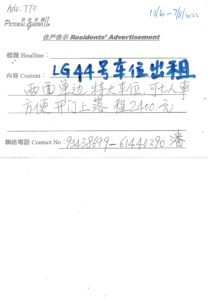 Adv. 770
13/6 - 7/8/2022
PICTORIAL GARDEN II
住戶告示 Residents' Advertisement
標題 Headline:
內容 Content: LG44号车位出租
两面单边,特大车位,可七人车
方便开门上落 租2400.元
聯絡電話 Contact No: 93438699-61446290 潘